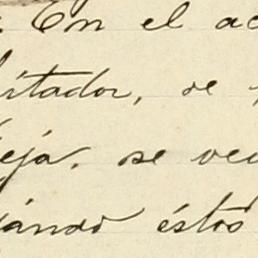 En el ac
itador, se
eja, se ve
ando éstos